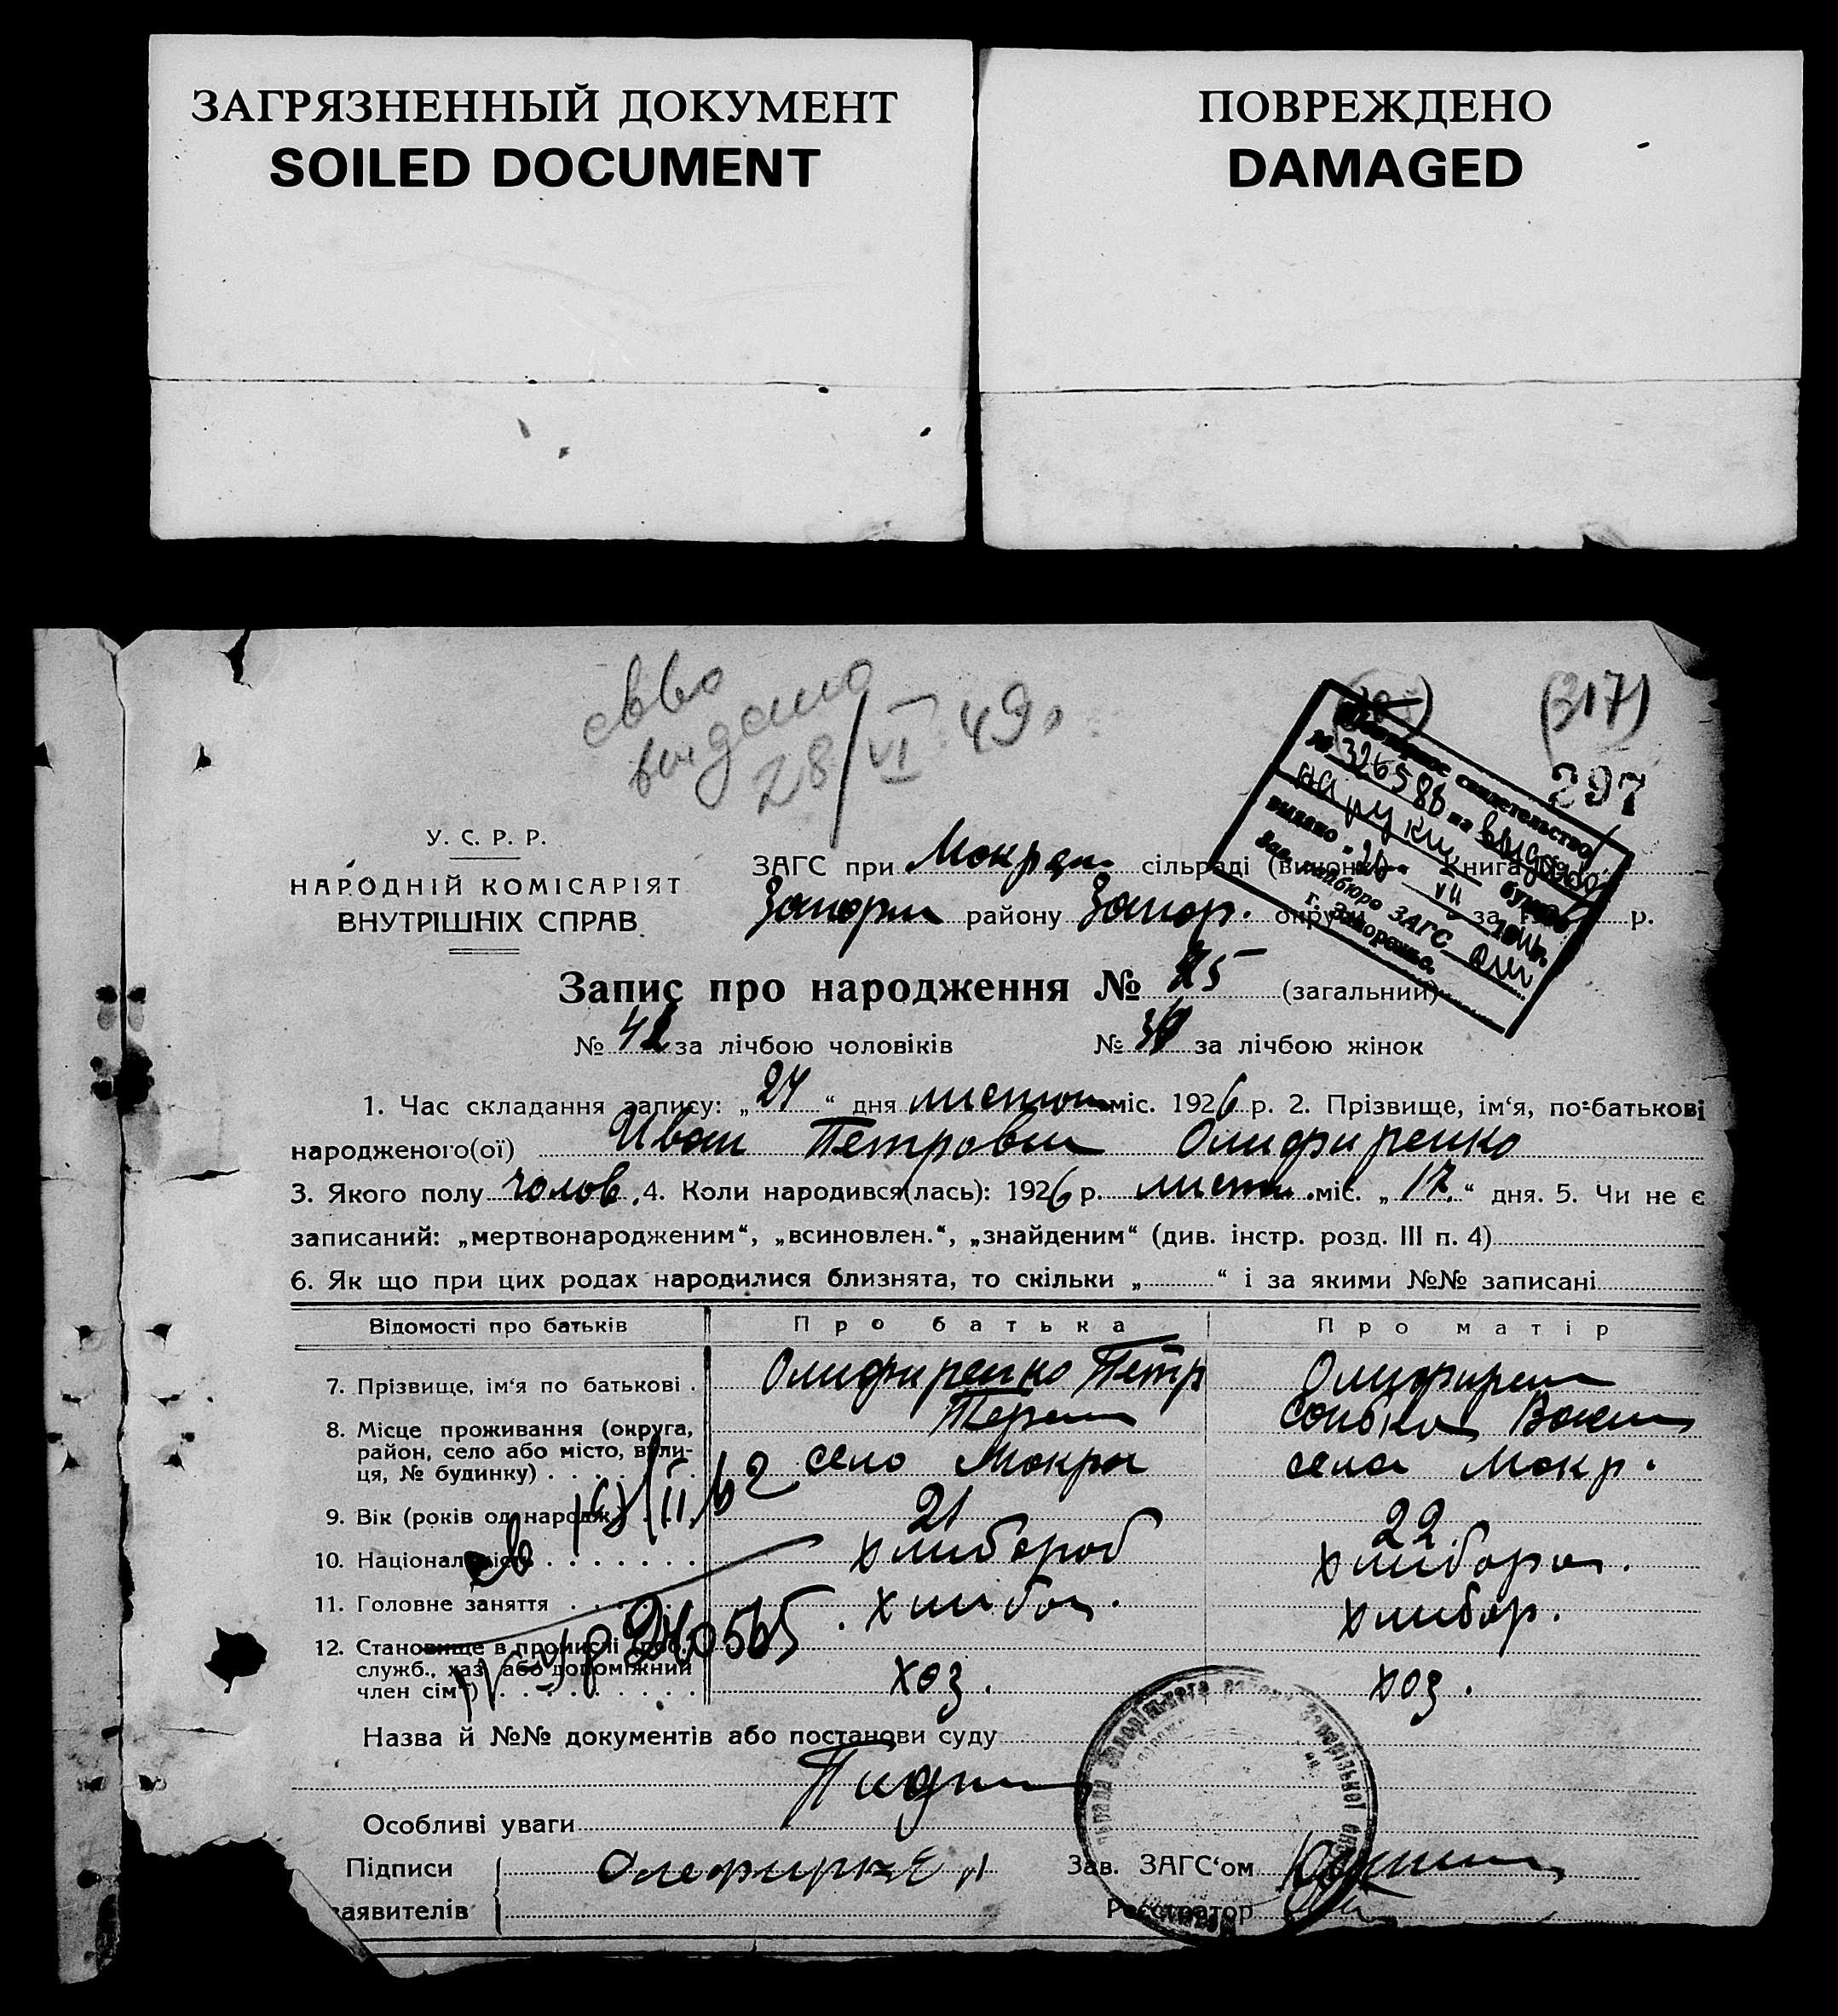 ЗАГРЯЗНЕННЫЙ ДОКУМЕНТ
SOILED DOCUMENT
ПОВРЕЖДЕНО
DAMAGED
видано
28/VI 49
(317)
297
свидетельство
№ 326588 на
на руки
выдано
ЗАГС
У. С. Р. Р.
НАРОДНІЙ КОМІСАРІЯТ
ВНУТРІШНІХ СПРАВ
ЗАГС при Мокрян сільраді
району Запор. округи за р.
Запис про народження № 75 (загальний)
№ за лічбою чоловіків № за лічбою жінок
1. Час складання запису: „24“ дня міс. 1926 р. 2. Прізвище, ім‘я, по-батькові
народженого(ої) Иван Петрович Олифиренко
3. Якого полу чолов. 4. Коли народився(лась): 1926 р. листоп. міс. „17.“ дня. 5. Чи не є
записаний: „мертвонародженим“, „всиновлен.“, „знайденим“ (див. інстр. розд. III п. 4)
6. Як що при цих родах народилися близнята, то скільки „ “ і за якими №№ записані
Відомості про батьків Про батька Про матір
7. Прізвище, ім‘я по батькові . Олифиренко Петр Олифирен
8. Місце проживання (округа,
район, село або місто, вули-
ця, № будинку) . . . . село Мокра село Мокр.
9. Вік (років од народж.) 21 22
10. Національність . . . . . . . хлибороб хлибороб.
11. Головне заняття . . . . . . хлибо. хлибор.
12. Становище в промислі
служб., хаз. або допоміжний
член сім‘ї) . . . . . . . . . хоз. хоз.
Назва й №№ документів або постанови суду
Особливі уваги
Підписи Зав. ЗАГС‘ом
заявителів Реєстратор